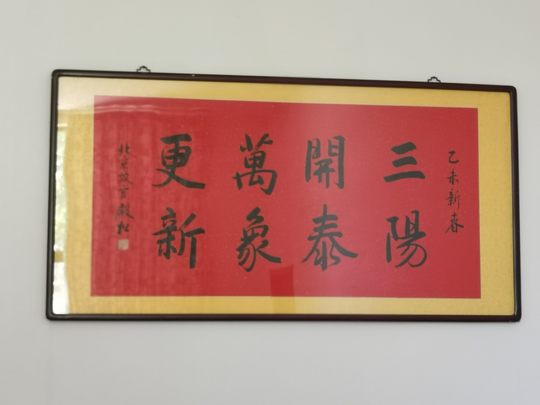 乙未新春
三陽
開泰
萬象
更新
北京故宫毅松